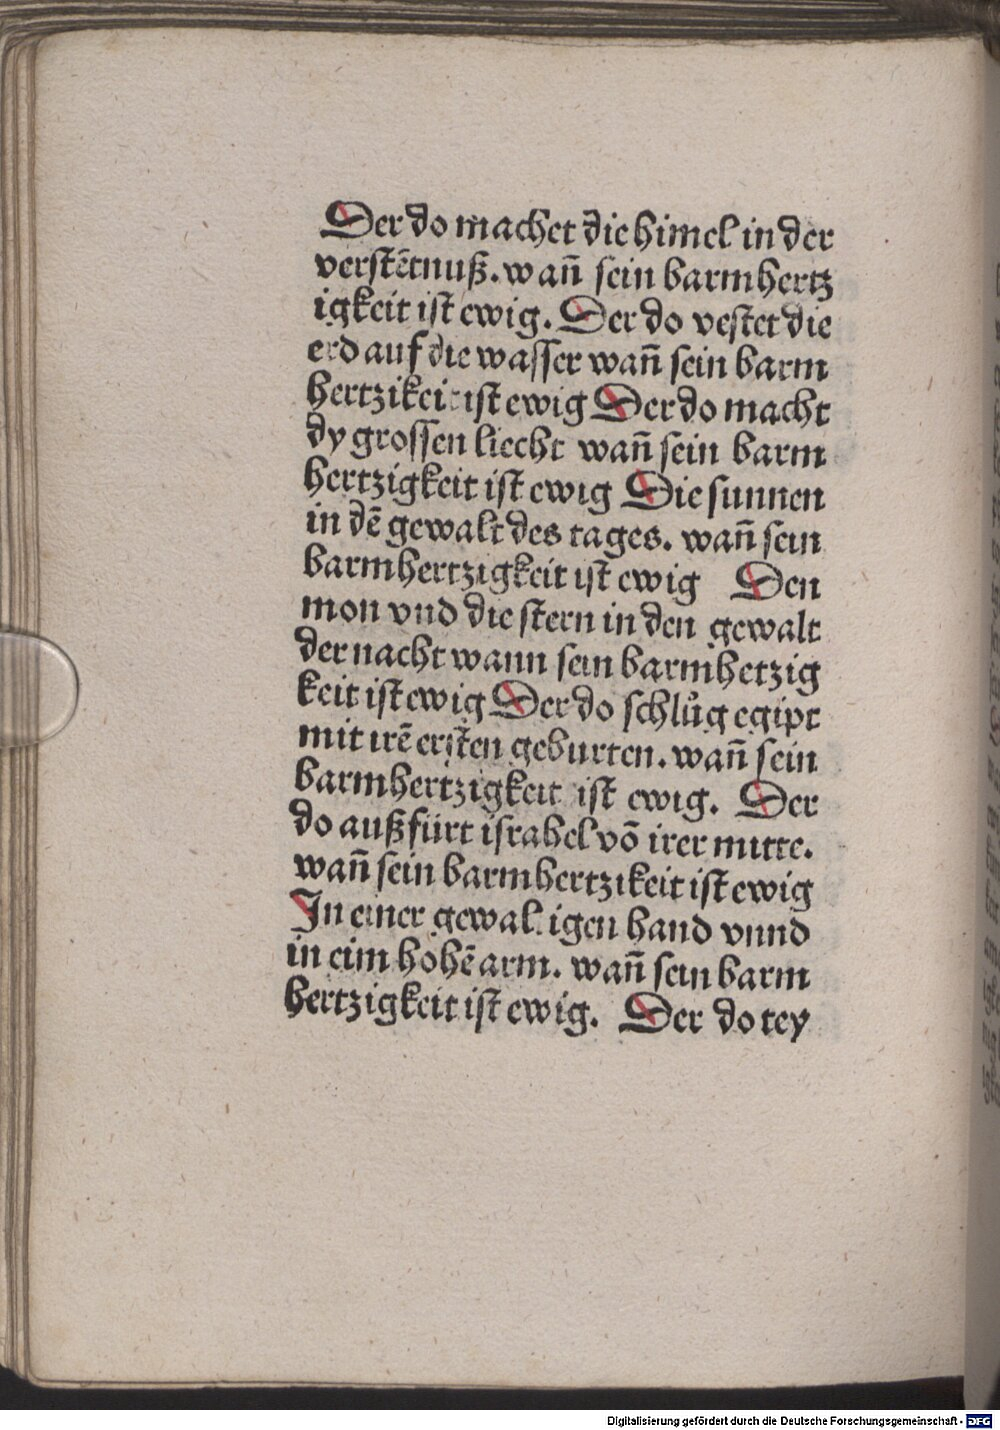 Der do machet die himel in der
verstẽtnuß. wañ sein barmhertz
igkeit ist ewig. Der do vestet die
erd auf die wasser wañ sein barm
hertzikeit ist ewig Der do macht
dy grossen liecht wañ sein barm
hertzigkeit ist ewig Die sunnen
in dẽ gewalt des tages. wañ sein
barmhertzigkeit ist ewig Den
mon vnd die stern in den gewalt
der nacht wann sein barmhetzig
keit ist ewig Der do schlůg egipt
mit irẽ ersten geburten. wañ sein
barmhertzigkeit ist ewig. Der
do außfürt israhel võ irer mitte.
wañ sein barmhertzikeit ist ewig
In einer gewaltigen hand vnnd
in eim hohẽ arm. wañ sein barm
hertzigkeit ist ewig. Der do tey
Digitalisierung gefördert durch die Deutsche Forschungsgemeinschaft - DFG